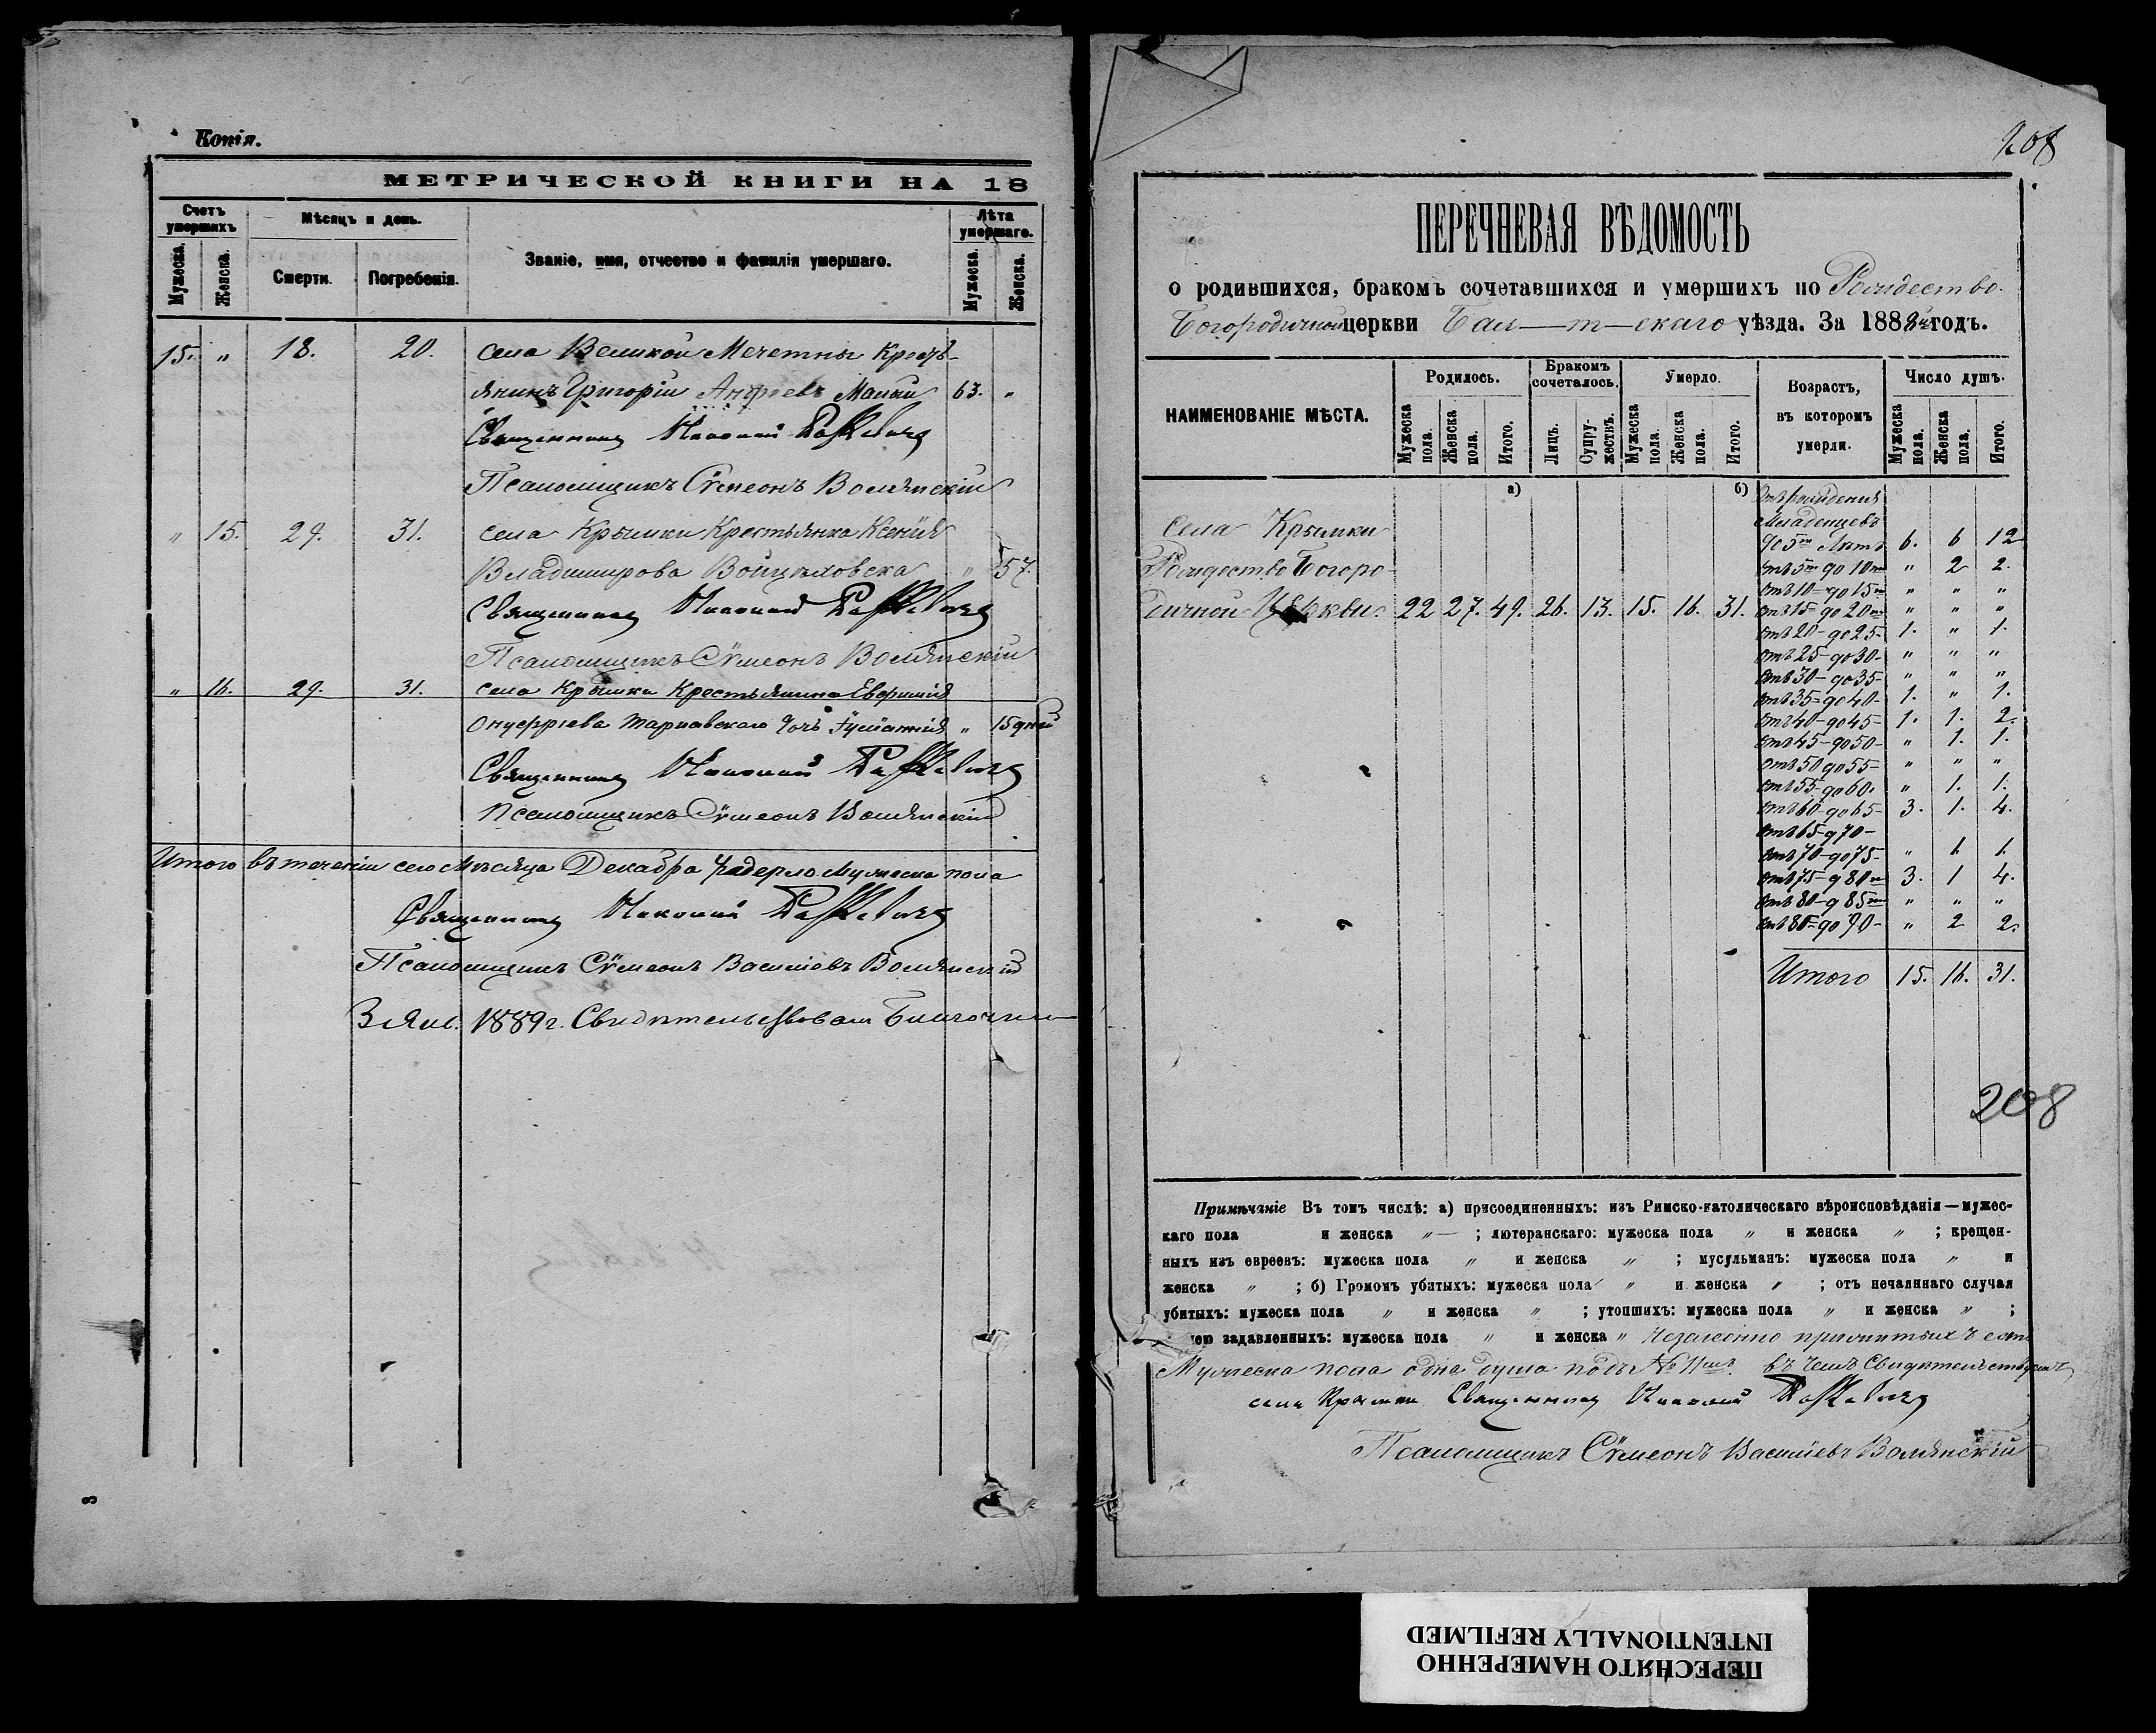 Копія.
МЕТРИЧЕСКОЙ КНИГИ НА 18
Счетъ умершихъ
Мѣсяцъ и день.
Званіе, имя, отчество и фамилія умершаго.
Лѣта умершаго.
Мужеска.
Женска.
Смерти.
Погребенія.
Мужеска.
Женска.
15. „ 18. 20. села Великой Мечетны Кресть-
янинъ Григорій Андреевъ Малый 63. „
Священникъ Николай
Псаломщикъ Сѵмеонъ Волянскій
„ 15. 29. 31. села Крымки Крестьянка Ксенія
Владимирова „ 57.
Священникъ Николай
Псаломщикъ Сѵмеонъ Волянскій
„ 16. 29. 31. села Крымки Крестьянина
Онуфріева Тарнавскаго дочь „ 15 дней
Священникъ Николай
Псаломщикъ Сѵмеонъ Волянскій
Итого въ теченіи сего Мѣсяца Декабра Мужеска пола
Священникъ Николай
Псаломщикъ Сѵмеонъ Василіевъ Волянскій
3 Янв. 1889 г. Свидѣтельствовалъ
8
208
ПЕРЕЧНЕВАЯ ВѢДОМОСТЬ
о родившихся, бракомъ сочетавшихся и умершихъ по Рождество-
Богородичной церкви Бал—т—скаго уѣзда. За 1888й годъ.
НАИМЕНОВАНІЕ МѢСТА.
Родилось.
Бракомъ сочеталось.
Умерло.
Возрастъ, въ которомъ умерли.
Число душъ.
Мужеска пола.
Женска пола.
Итого.
Лицъ.
Супружествъ.
Мужеска пола.
Женска пола.
Итого.
Мужеска пола.
Женска пола.
Итого.
а) б)
Отъ рожденія
Младенцевъ
до 5ти Лѣтъ 6. 6 12
отъ 5ти до 10ти „ 2 2.
отъ 10 до 15ти „ „ „
отъ 15 до 20ти „ „ „
отъ 20 до 25 1. „ 1.
отъ 25 до 30 „ „ „
отъ 30 до 35 „ „ „
отъ 35 до 40 1. „ 1.
отъ 40 до 45 1. 1. 2.
отъ 45 до 50 „ 1. 1.
отъ 50 до 55 „ „ „
отъ 55 до 60. „ 1. 1.
отъ 60 до 65 3. 1. 4.
отъ 65 д 70
отъ 70 до 75 „ 1. 1.
отъ 75 д 80ти 3. 1 4.
отъ 80 д 85ти „ „ „
отъ 85 до 90 „ 2 2.
Итого 15. 16. 31.
села Крымки
Рождество Богоро-
дичной Церкви. 22 27. 49. 26. 13. 15. 16. 31.
208
Примѣчаніе Въ томъ числѣ: а) присоединенныхъ: изъ Римско-католическаго вѣроисповѣданія—мужес-
каго пола и женска „ — ; лютеранскаго: мужеска пола „ и женска „ ; крещен-
ныхъ изъ евреевъ: мужеска пола „ и женска „ ; мусульманъ: мужеска пола „ и
женска „ ; б) Громомъ убитыхъ: мужеска пола „ и женска „ ; отъ нечаяннаго случая
убитыхъ: мужеска пола „ и женска „ ; утопшихъ: мужеска пола „ и женска „ ;
задавленныхъ: мужеска пола „ и женска „
Мужеска пола одна душа подъ № 11мъ. въ чемъ Свидѣтельствуемъ
села Крымки Священникъ Николай
Псаломщикъ Сѵмеонъ Василіевъ Волянскій
ПЕРЕСНЯТО НАМЕРЕННО
INTENTIONALLY REFILMED